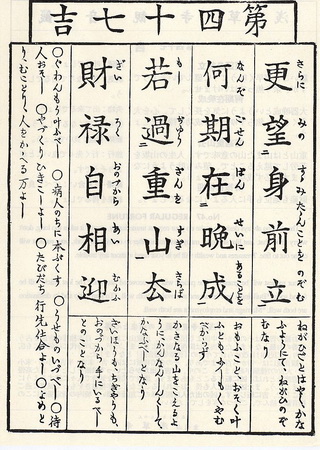 第四十七吉
更望身前立
さらに みの たゝんことを のぞむ
ねがひごとはやくかな
ふよふにて、ねがひのぞ
むなり
何期在晩成
なんぞ ごせん ばん せいに あることを
おもふこと、おそく叶
ふとも、くやむ
べからず
若過重山去
もし ざんを すぎ さらば
かさなる山をこえるよ
うにかんなん
かなふべしとなり
財禄自相迎
ざい ろく おのづから あい むかふ
さいほうも、ちぎやうも、
おのづから手にいるべし
とのことなり
○ぐわんもう叶ふべし ○病人のちに本ぷくす ○うせものいづべし ○待
人おそし ○やづくり よし ○たびだち行先仕合よし ○よめと
り、むことり、人をかゝへる万よし